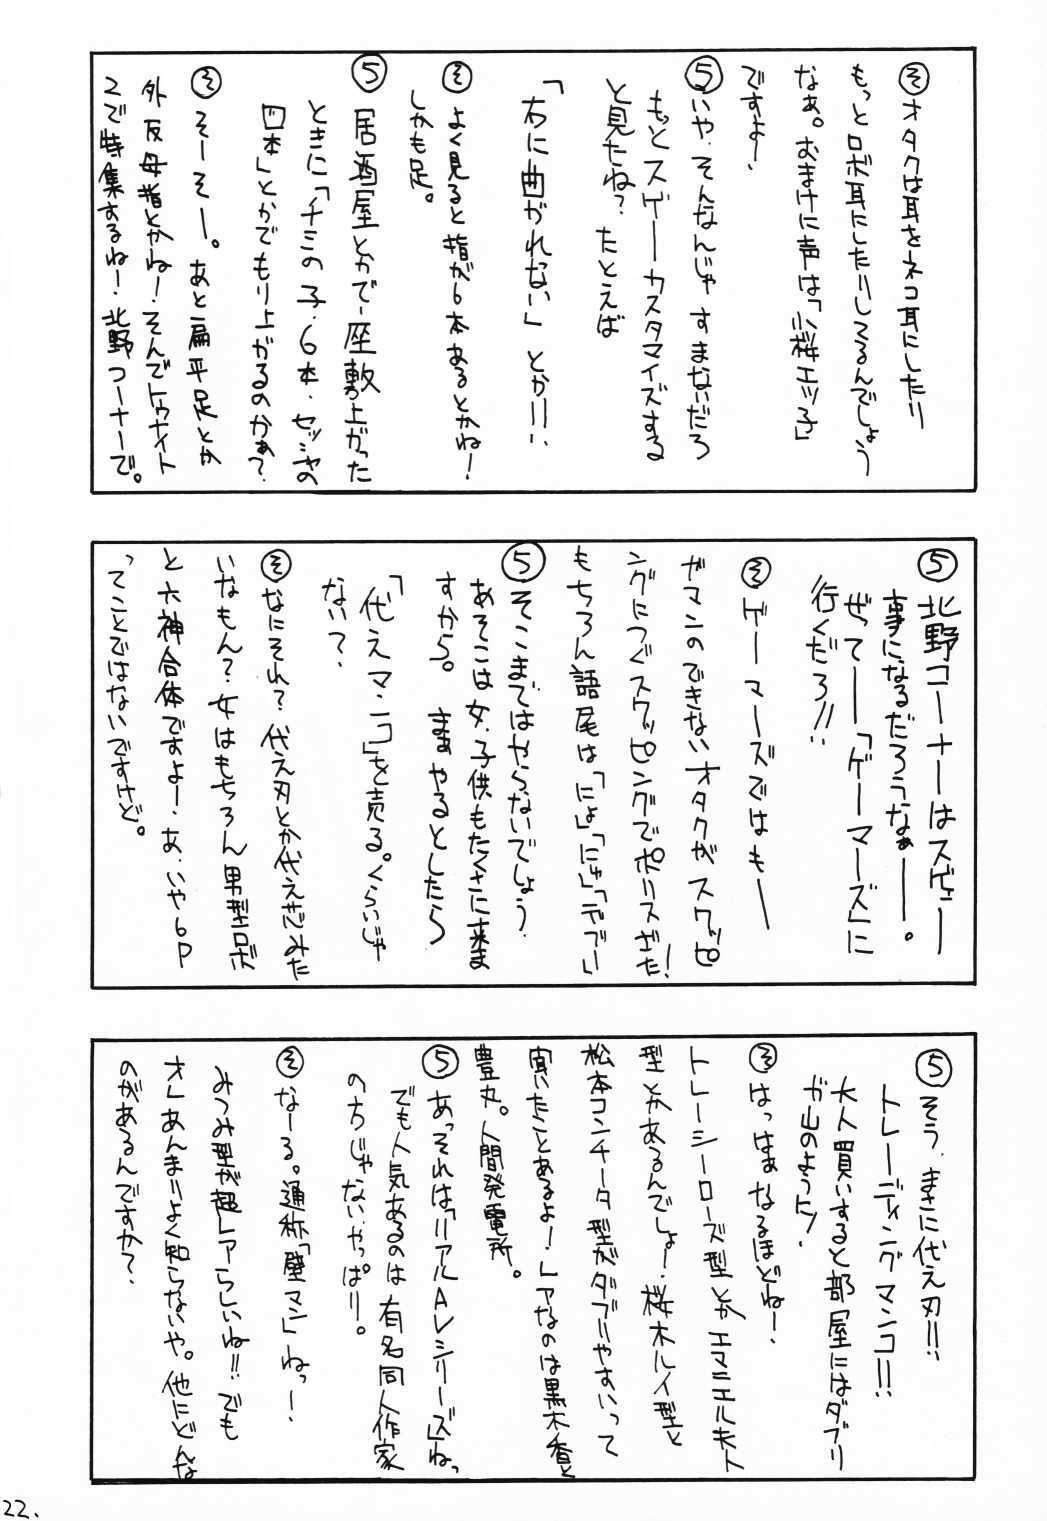 そ オタクは耳をネコ耳にしたり
もっとロボ耳にしたりしてるんでしょう
なぁ。おまけに声は「小桜エツ子」
ですよー、
5 いや、そんなんじゃすまないだろ
もっとスゲーカスタマイズする
と見たね? たとえば
「右に曲がれない」とか!!、
そ よく見ると指が6本あるとかね!
しかも足。
5 居酒屋とかで座敷上がった
ときに「チミの子、6本、セッシャの
四本」とかでもり上がるのかぁ?
そ そーそー。あと扁平足とか
外反母指とかね!そんでトゥナイト
2で特集するね!北野コーナーで。
5 北野コーナーはスゲェー
事になるだろうなぁーー。
ぜってーー「ゲーマーズ」に
行くだろ!!
そ ゲーマーズではもー
ガマンのできないオタクがスワッピ
ングにつぐスワッピングでポリスざた!
もちろん語尾は「にょ」「にゅ」「でブー」
5 そこまではやらないでしょう
あそこは女、子供もたくさんに来ま
すから。まぁやるとしたら
「代えマンコ」を売る。くらいじゃ
ない?
そ なにそれ?代え刃とか代え芯みた
いなもん?女はもちろん男型ロボ
と六神合体ですよー、あ、いや6P
ってことではないですけど。
5 そう、まさに代え刃!!
トレーディングマンコ!!
大人買いすると部屋にはダブリ
が山のように!
そ はっはぁなるほどねー、
トレーシーローズ型とかエマニエル夫人
型とかあるんでしょー、桜木ルイ型と
松本コンチータ型がダブりやすいって
聞いたことあるよー!レアなのは黒木香と
豊丸。人間発電所。
5 あっそれは「リアルAVシリーズ」ねっ
でも人気あるのは有名同人作家
の方じゃない、やっぱり。
そ なーる。通称「壁マン」ねっー、
みつみ型が超レアらしいね!!でも
オレあんまりよく知らないや。他にどんな
のがあるんですか?
22.